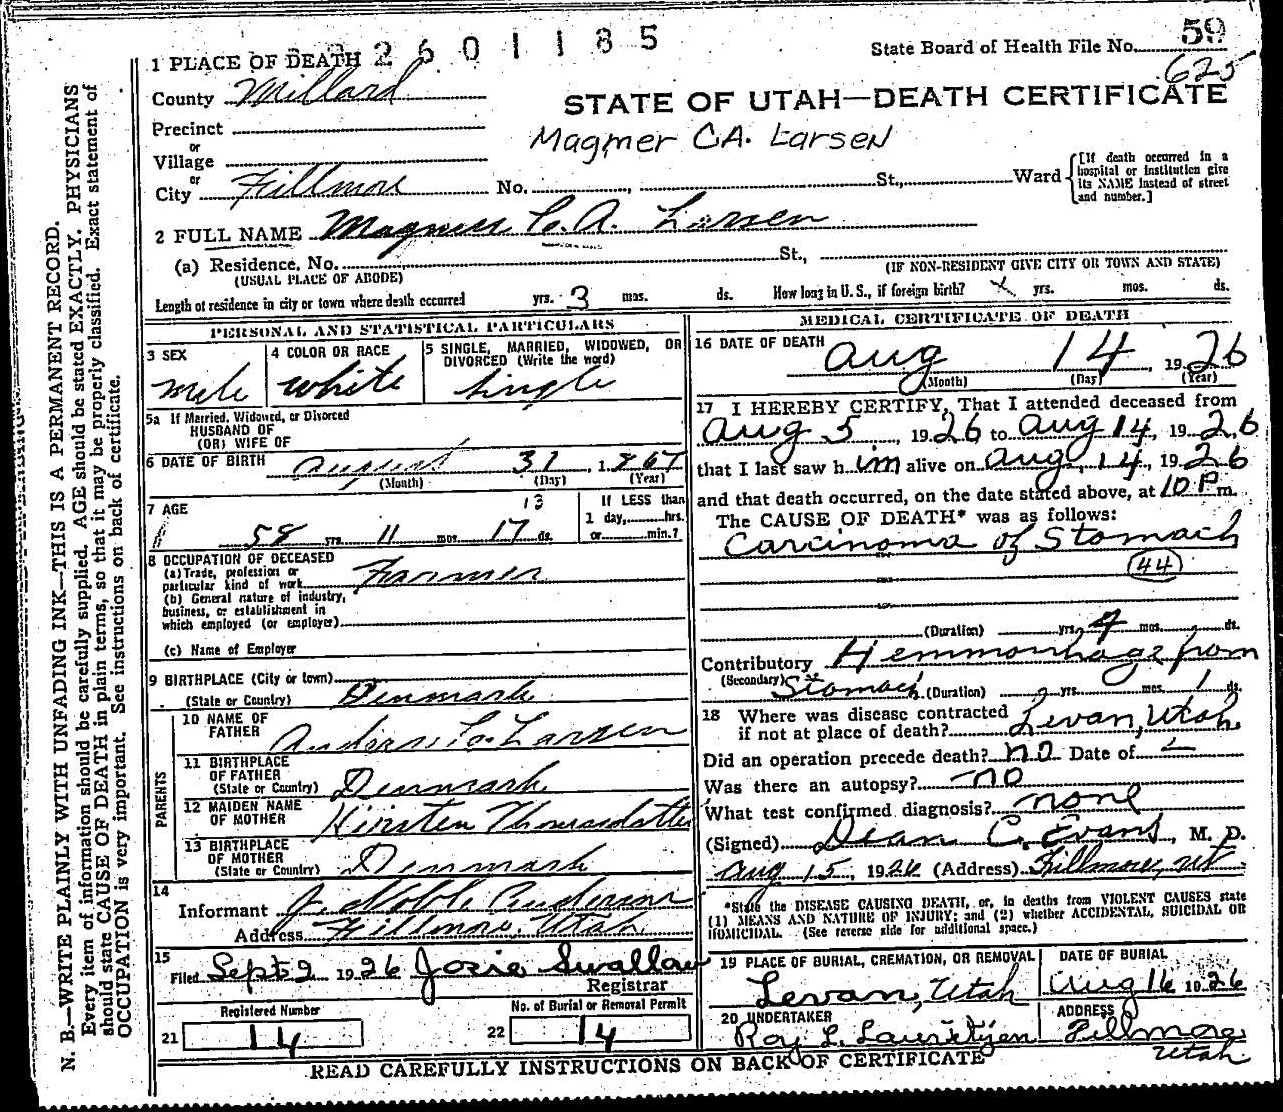 2601185
State Board of Health File No. 59
625
1 PLACE OF DEATH
County Millard
STATE OF UTAH—DEATH CERTIFICATE
Magmer C.A. Larsen
Precinct
or
Village
or
City Fillmore No. St., Ward
[If death occurred in a
hospital or institution give
its NAME instead of street
and number.]
2 FULL NAME Magmer C. A. Larsen
(a) Residence, No. St.,
(USUAL PLACE OF ABODE) (IF NON-RESIDENT GIVE CITY OR TOWN AND STATE)
Length of residence in city or town where death occurred yrs. 3 mos. ds. How long in U. S., if foreign birth? yrs. mos. ds.
PERSONAL AND STATISTICAL PARTICULARS
3 SEX
Male
4 COLOR OR RACE
White
5 SINGLE, MARRIED, WIDOWED, OR
DIVORCED (Write the word)
Single
5a If Married, Widowed, or Divorced
HUSBAND OF
(OR) WIFE OF
6 DATE OF BIRTH August 31, 1867
(Month) (Day) (Year)
7 AGE
13
58 yrs. 11 mos. 17 ds.
If LESS than
1 day, hrs.
or min.?
8 OCCUPATION OF DECEASED
(a) Trade, profession or
particular kind of work Farmer
(b) General nature of industry,
business, or establishment in
which employed (or employer)
(c) Name of Employer
9 BIRTHPLACE (City or town)
(State or Country) Denmark
PARENTS
10 NAME OF
FATHER Anders C. Larsen
11 BIRTHPLACE
OF FATHER
(State or Country) Denmark
12 MAIDEN NAME
OF MOTHER Kirsten Thomasdatter
13 BIRTHPLACE
OF MOTHER
(State or Country) Denmark
14
Informant J. Noble Anderson
Address Fillmore, Utah
15
Filed Sept 2 1926 Josie Swallow
Registrar
Registered Number
21 14
No. of Burial or Removal Permit
22 14
MEDICAL CERTIFICATE OF DEATH
16 DATE OF DEATH
Aug 14, 1926
(Month) (Day) (Year)
17 I HEREBY CERTIFY, That I attended deceased from
Aug 5, 1926 to Aug 14, 1926
that I last saw him alive on Aug, 14, 1926
and that death occurred, on the date stated above, at 10 P m.
The CAUSE OF DEATH* was as follows:
Carcinoma of Stomach
44
(Duration) yrs. mos. ds.
Contributory Hemmorhage from
(Secondary) Stomach (Duration) yrs. mos. 1 ds.
18 Where was disease contracted
if not at place of death? Levan, Utah
Did an operation precede death? no Date of
Was there an autopsy? no
What test confirmed diagnosis? none
(Signed) Dean C. Evans, M. D.
Aug 15, 1926 (Address) Fillmore, Ut
*State the DISEASE CAUSING DEATH, or, in deaths from VIOLENT CAUSES state
(1) MEANS AND NATURE OF INJURY; and (2) whether ACCIDENTAL, SUICIDAL OR
HOMICIDAL. (See reverse side for additional space.)
19 PLACE OF BURIAL, CREMATION, OR REMOVAL
Levan, Utah
DATE OF BURIAL
Aug 16 1926
20 UNDERTAKER
Roy L. Lauritzen
ADDRESS
Fillmore
Utah
READ CAREFULLY INSTRUCTIONS ON BACK OF CERTIFICATE
N. B.—WRITE PLAINLY WITH UNFADING INK—THIS IS A PERMANENT RECORD.
Every item of information should be carefully supplied. AGE should be stated EXACTLY. PHYSICIANS
should state CAUSE OF DEATH in plain terms, so that it may be properly classified. Exact statement of
OCCUPATION is very important. See instructions on back of certificate.